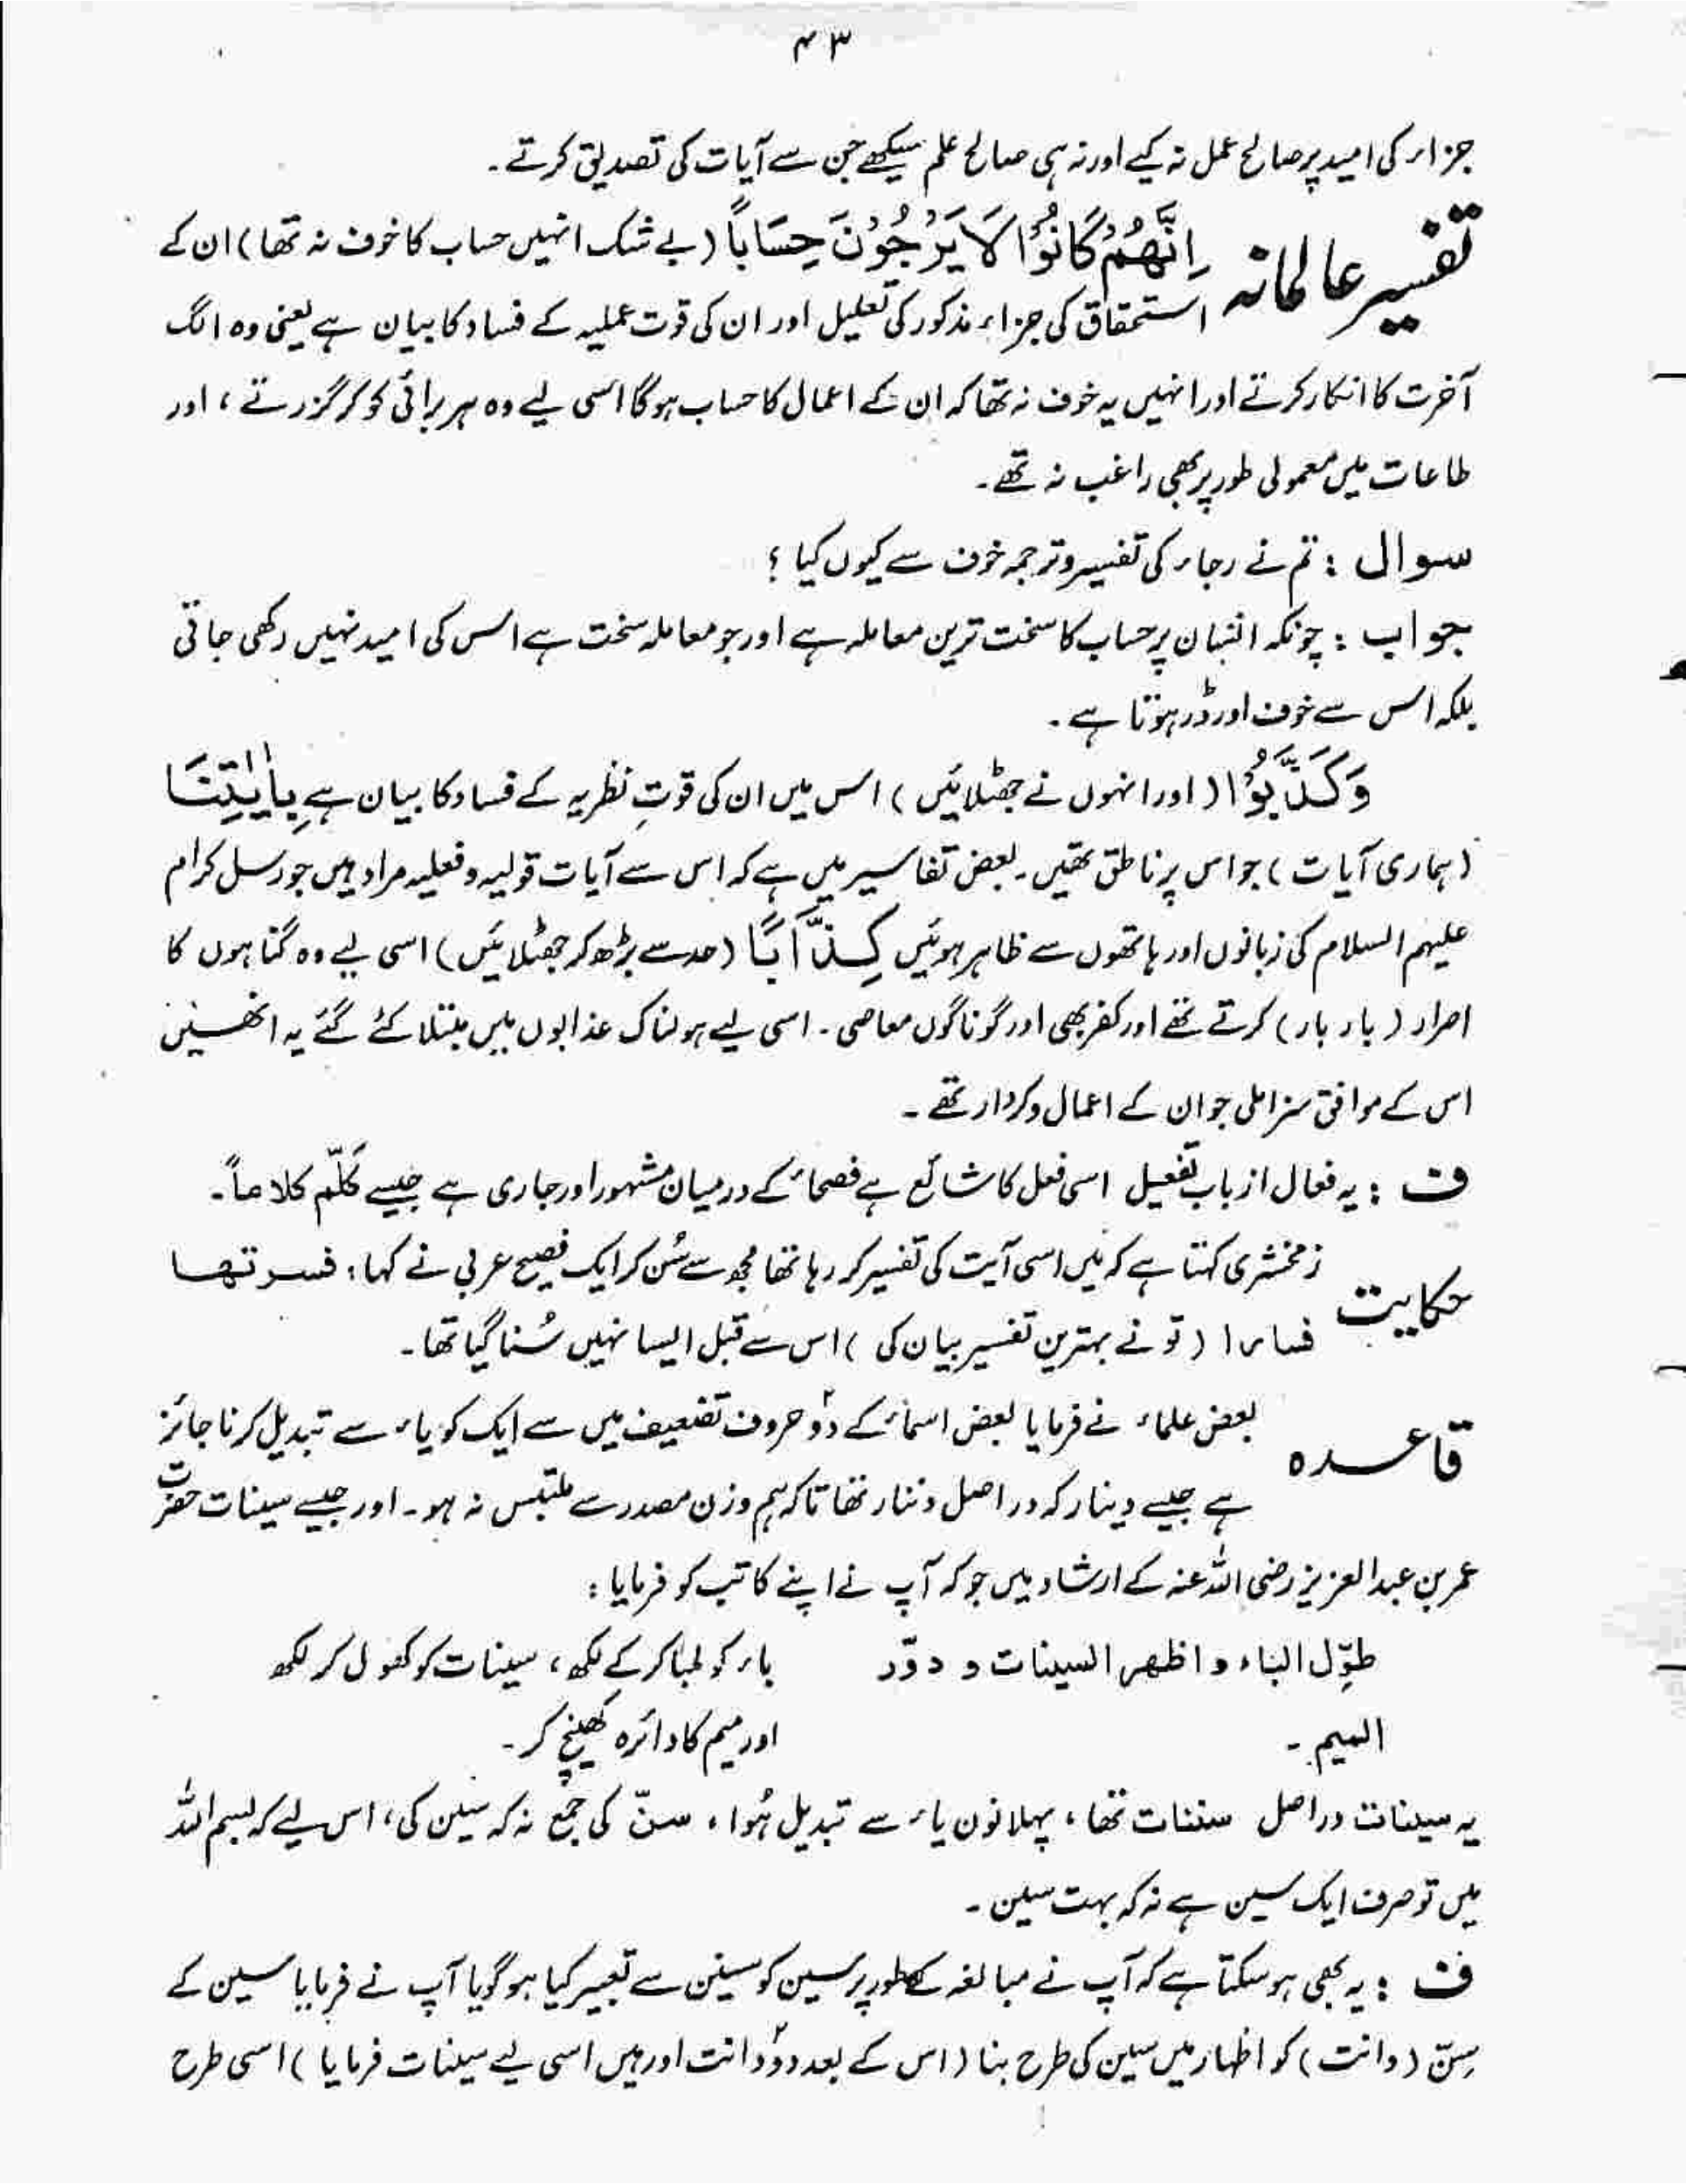 ۴۳
جزاء کی امید پر صالح عمل نہ کیے اور نہ ہی صالح علم سیکھے جن سے آیات کی تصدیق کرتے۔
تفسیر عالمانہ اِنَّهُمْ كَانُوْا لَا يَرْجُوْنَ حِسَابًا (بے شک انہیں حساب کا خوف نہ تھا) ان کے
استحقاق کی جزاء مذکور کی تعلیل اور ان کی قوت عملیہ کے فساد کا بیان ہے یعنی وہ الگ
آخرت کا انکار کرتے اور انہیں یہ خوف نہ تھا کہ ان کے اعمال کا حساب ہوگا اسی لیے وہ ہر برائی کو کر گزرتے، اور
طاعات میں معمولی طور پر بھی راغب نہ تھے۔
سوال : تم نے رجاء کی تفسیر و ترجمہ خوف سے کیوں کیا؟
جواب : چونکہ انسان پر حساب کا سخت ترین معاملہ ہے اور جو معاملہ سخت ہے اس کی امید نہیں رکھی جاتی
بلکہ اس سے خوف اور ڈر ہوتا ہے۔
وَكَذَّبُوْا (اور انہوں نے جھٹلائیں) اس میں ان کی قوتِ نظریہ کے فساد کا بیان ہے بِاٰيٰتِنَا
(ہماری آیات) جو اس پر ناطق تھیں۔ بعض تفاسیر میں ہے کہ اس سے آیات قولیہ و فعلیہ مراد ہیں جو رسل کرام
علیہم السلام کی زبانوں اور ہاتھوں سے ظاہر ہوئیں كِذَّابًا (حد سے بڑھ کر جھٹلائیں) اسی لیے وہ گناہوں کا
اصرار (بار بار) کرتے تھے اور کفر بھی اور گوناگوں معاصی۔ اسی لیے ہولناک عذابوں میں مبتلا کئے گئے یہ انھیں
اس کے موافق سزا ملی جو ان کے اعمال و کردار تھے۔
ف : یہ فعال از باب تفعیل اسی فعل کا شائع ہے فصحاء کے درمیان مشہور اور جاری ہے جیسے کَلَّم کلاماً۔
حکایت زمخشری کہتا ہے کہ میں اسی آیت کی تفسیر کر رہا تھا مجھ سے سُن کر ایک فصیح عربی نے کہا: فسرتها
فسارا (تو نے بہترین تفسیر بیان کی) اس سے قبل ایسا نہیں سُنا گیا تھا۔
قاعدہ بعض علماء نے فرمایا بعض اسماء کے دو۲ حروف تضعیف میں سے ایک کو یاء سے تبدیل کرنا جائز
ہے جیسے دینار کہ دراصل دننار تھا تاکہ ہم وزن مصدر سے ملتبس نہ ہو۔ اور جیسے سینات حضرت
عمر بن عبدالعزیز رضی اللہ عنہ کے ارشاد میں جو کہ آپ نے اپنے کاتب کو فرمایا:
طوِّل الباء و اظهر السینات و دوّر باء کو لمبا کر کے لکھ، سینات کو کھول کر لکھ
المیم۔ اور میم کا دائرہ کھینچ کر۔
یہ سینات دراصل سننات تھا، پہلا نون یاء سے تبدیل ہُوا، سنّ کی جمع نہ کہ سین کی، اس لیے کہ بسم اللہ
میں تو صرف ایک سین ہے نہ کہ بہت سین۔
ف : یہ بھی ہو سکتا ہے کہ آپ نے مبالغہ کے طور پر سین کو سنین سے تعبیر کیا ہو گویا آپ نے فرمایا سین کے
سِنّ (دانت) کو اظہار میں سین کی طرح بنا (اس کے بعد دو۲ دانت اور ہیں اسی لیے سینات فرمایا) اسی طرح